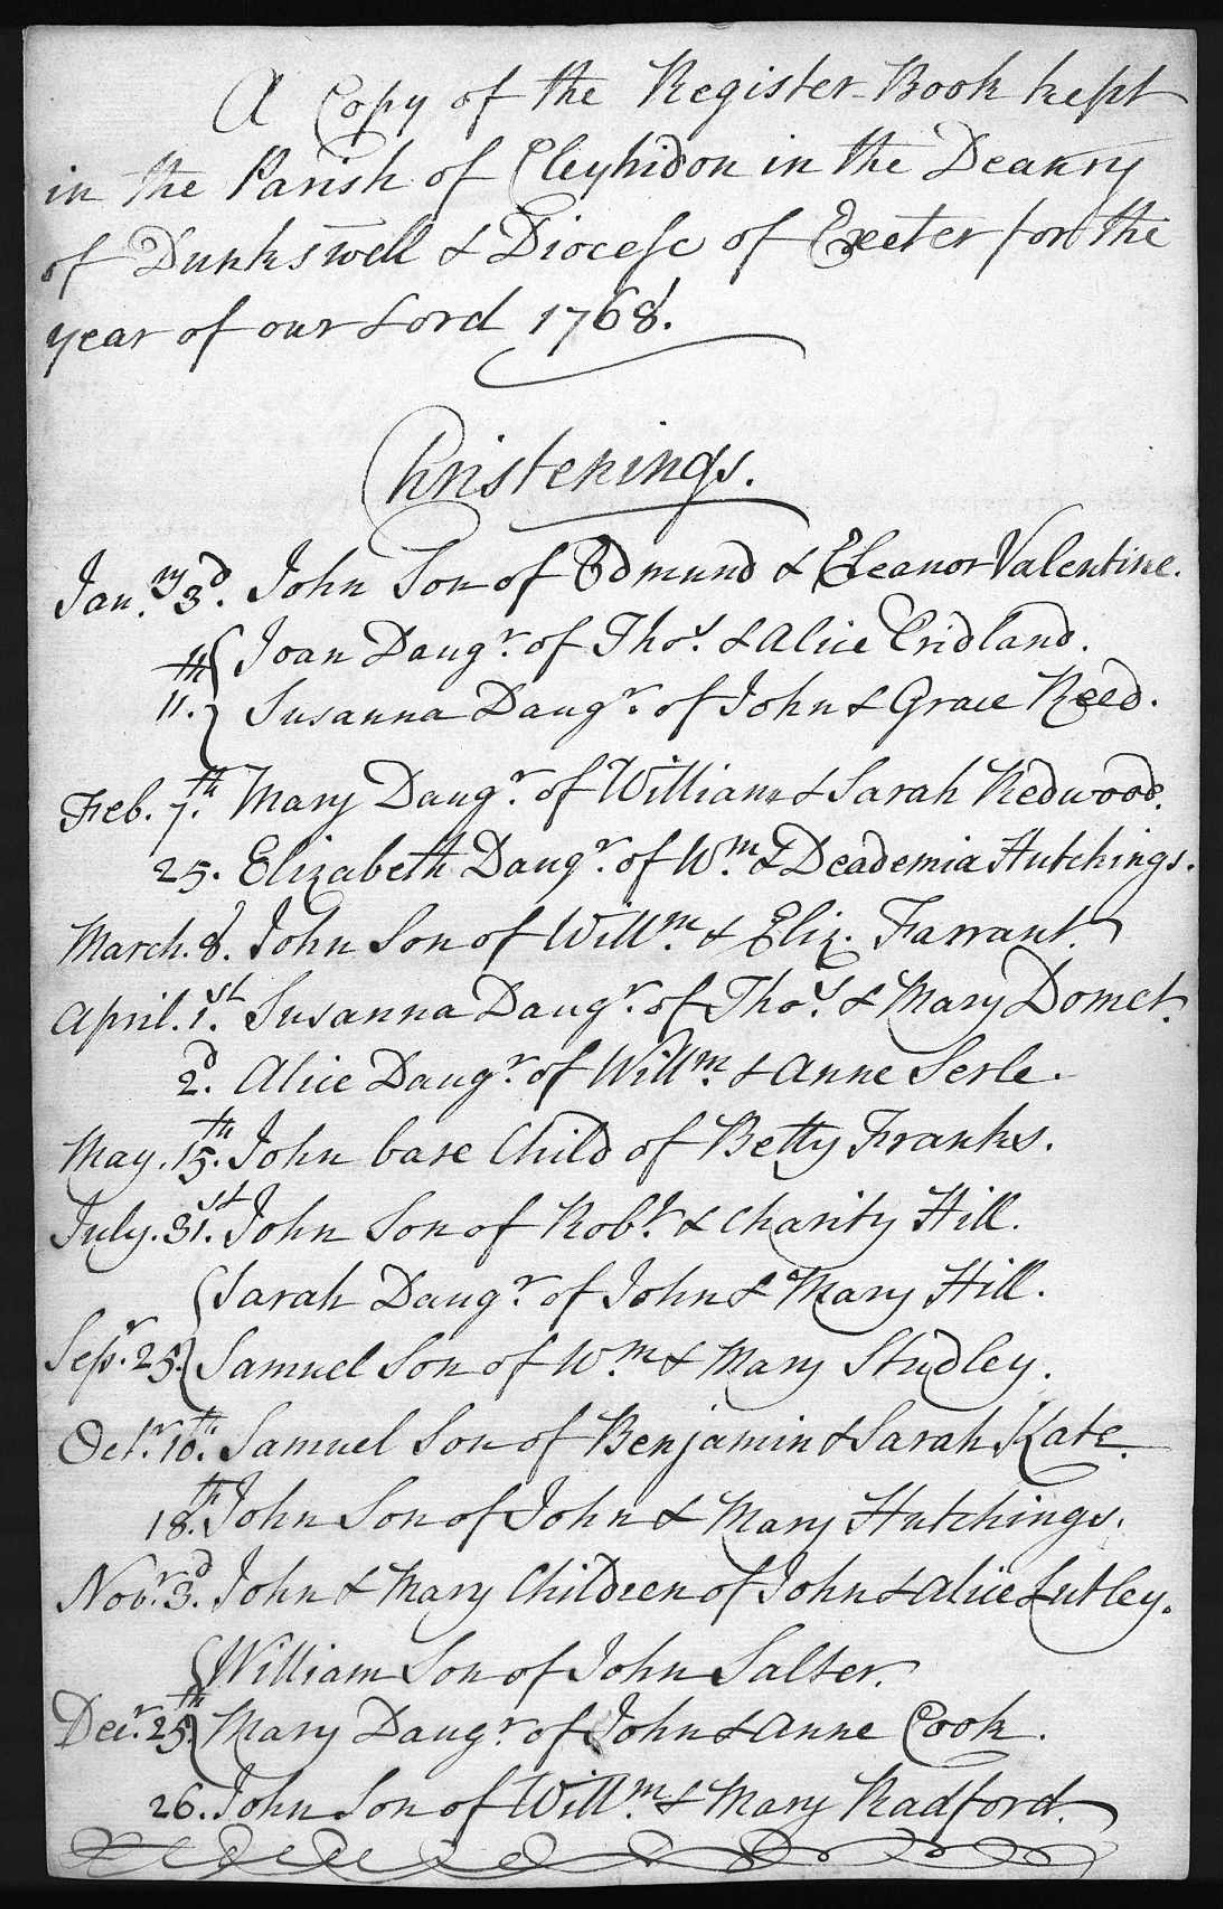 A Copy of the Register Book kept
in the Parish of Cleyhidon in the Deanry
of Dunkswell & Diocese of Exeter for the
year of our Lord 1768.
Christenings.
Jan.ry 3d. John Son of Edmund & Eleanor Valentine.
Joan Daugr. of Thos. & Alice Cridland.
th
11. Susanna Daugr. of John & Grace Reed.
Feb. 7.th Mary Daugr. of William & Sarah Redwood.
25. Elizabeth Daugr. of Wm. & Deademia Hutchings.
March. 8. John Son of Willm. & Eliz. Farrant.
April. 1.st Susanna Daugr. of Thos. & Mary Domet.
2d. Alice Daugr. of Willm. & Anne Serle.
May. 15.th John base Child of Betty Franks.
July. 31.st John Son of Robt. & Charity Hill.
Sarah Daugr. of John & Mary Hill.
Sepr. 25. Samuel Son of Wm. & Mary Studley.
Octr. 10.th Samuel Son of Benjamin & Sarah Kate.
18.th John Son of John & Mary Hutchings.
Novr. 3d. John & Mary Children of John & Alice Lutley.
William Son of John Salter.
Decr. 25th Mary Daugr. of John & Anne Cook.
26. John Son of Willm. & Mary Radford.